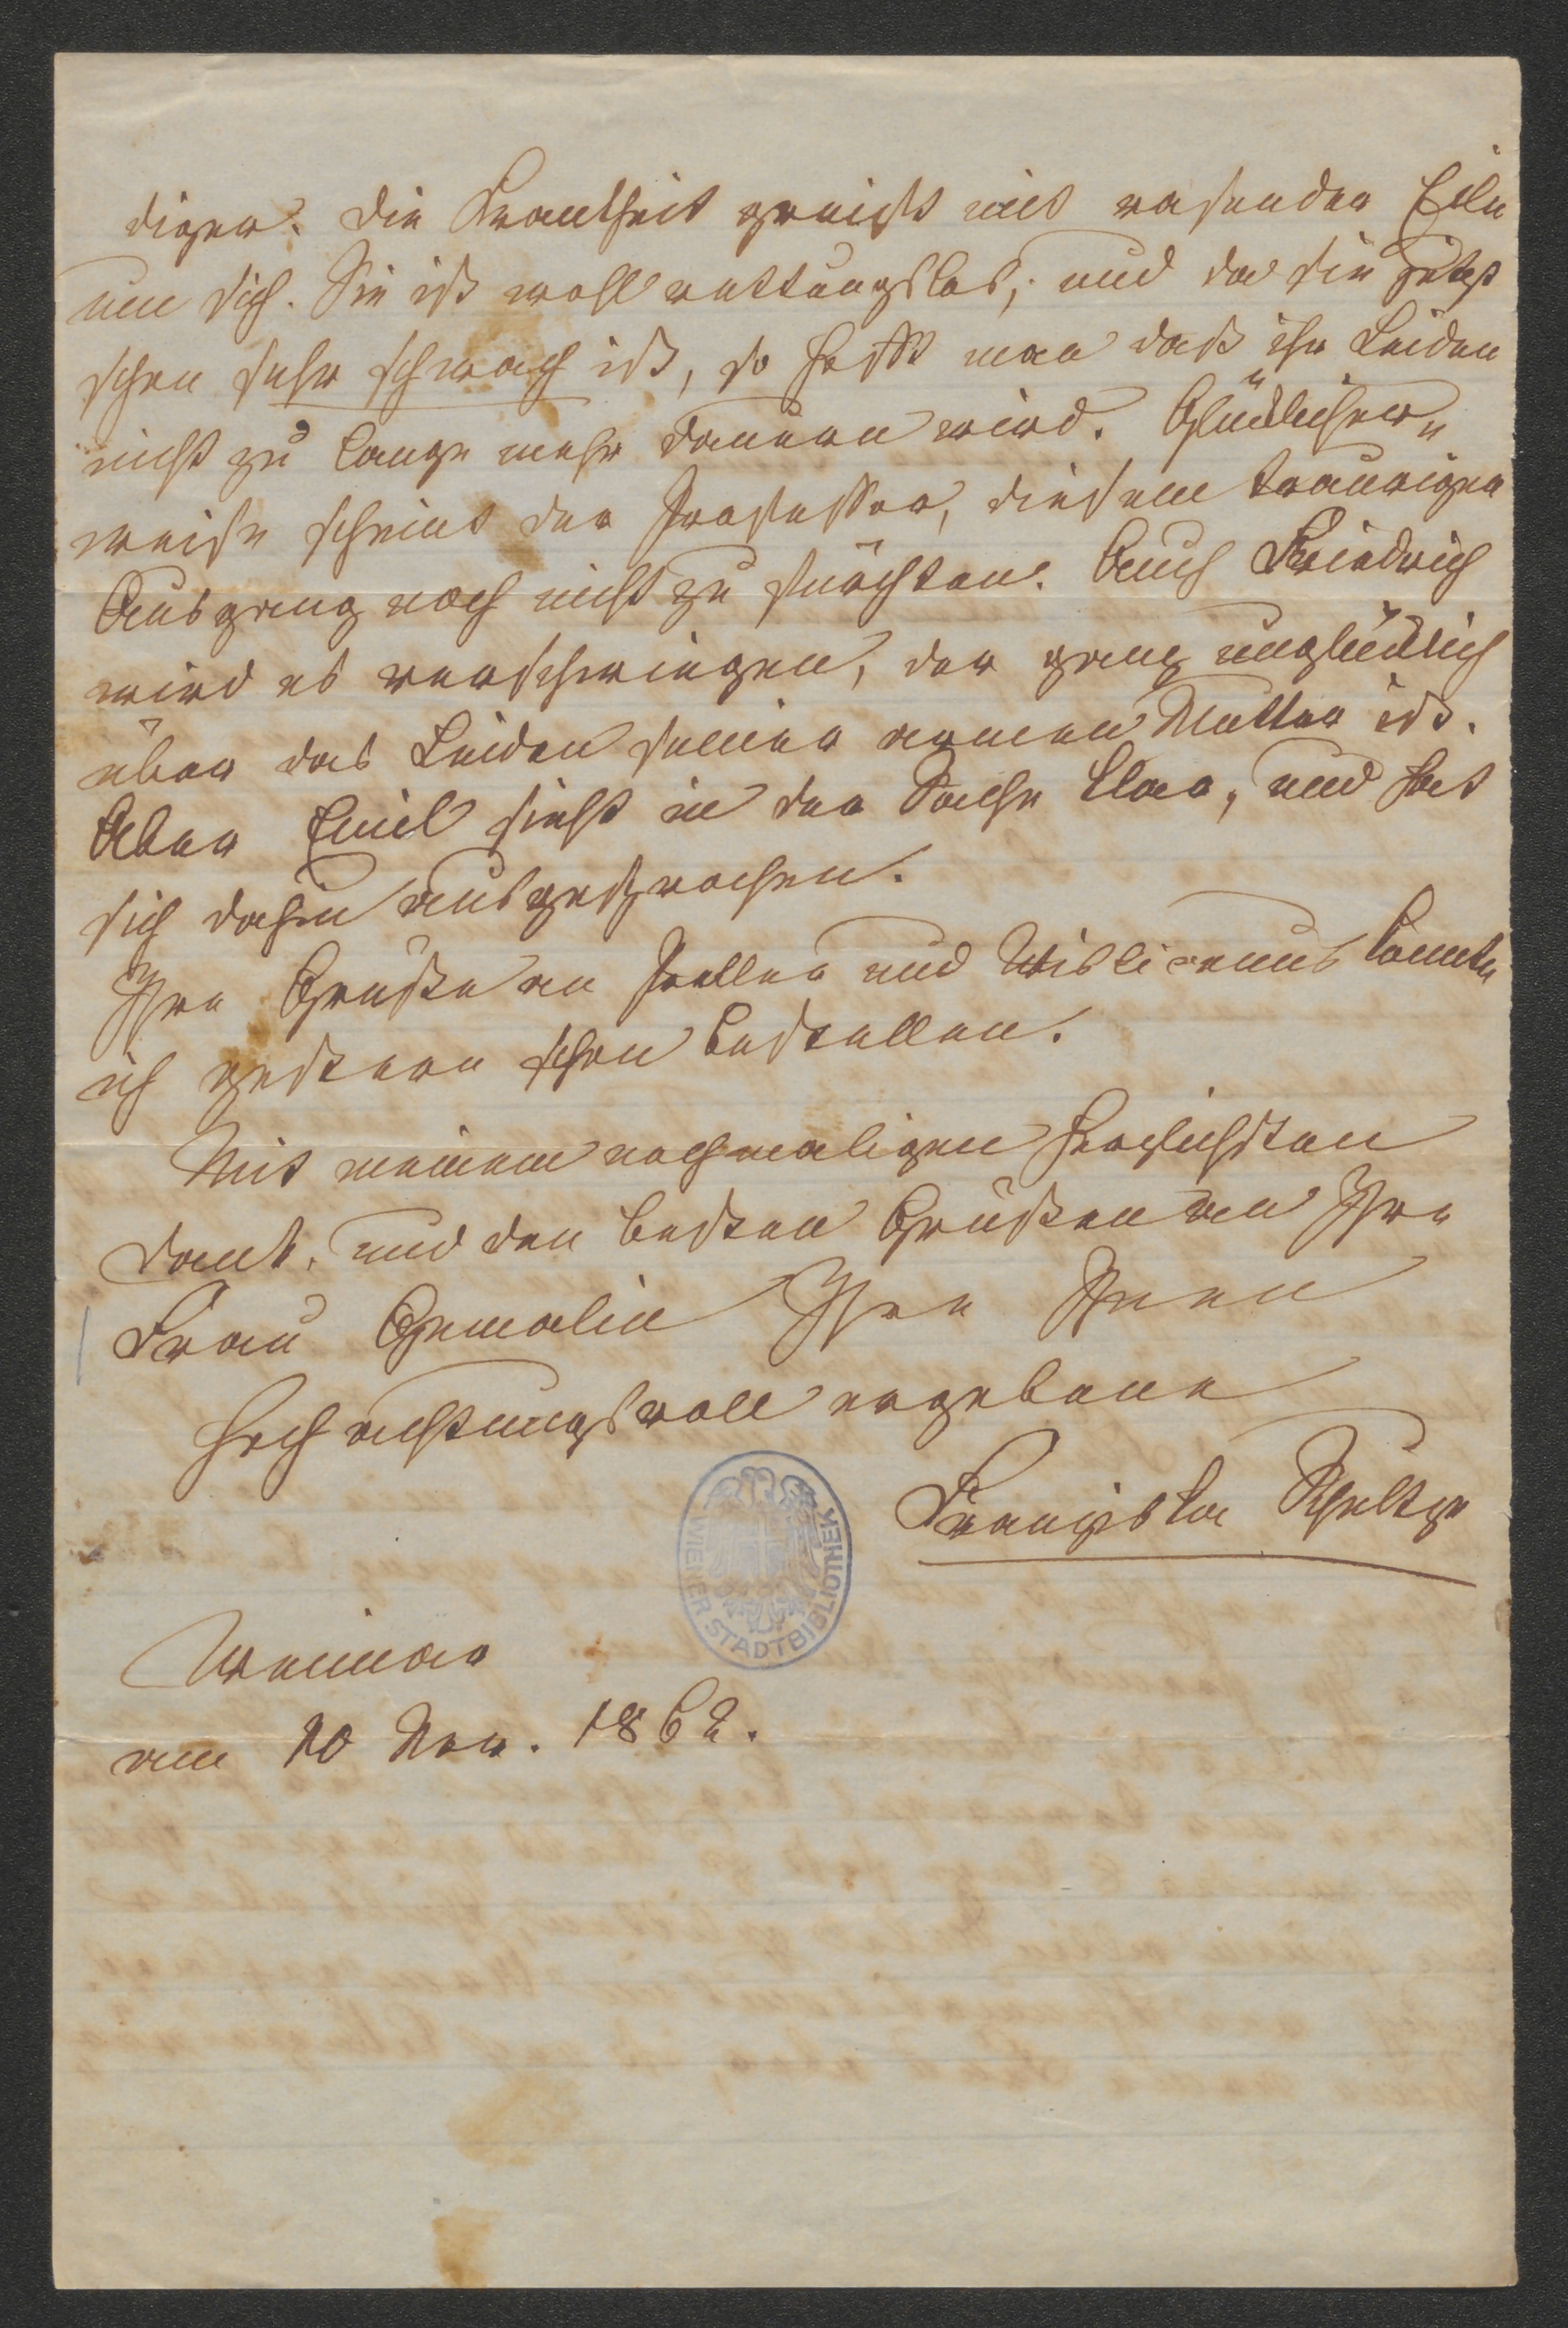 digen. Die Krankheit greift mit rasender Eile
um sich. Sie ist wohl rettungslos, und da sie jetzt
schon sehr schwach ist, so hofft man daß ihr Leiden
nicht zu lange mehr dauern wird. Glücklicher„
weise scheint der Professor, diesem traurigen
Ausgang noch nicht zu fürchten. Auch Friedrich
wird es verschwiegen, der ganz unglücklich
über das Leiden seiner armen Mutter ist.
Aber Emil sieht in der Sache klar, und hat
sich dahin ausgesprochen.
Ihre Grüße an Preller und Wislicenus konnte
ich gestern schon bestellen.
Mit meinem nochmaligen herzlichsten
Dank, und den besten Grüßen an Ihre
Frau Gemalin Ihre Ihnen
hochachtungsvoll ergebene
Franziska Schultze
WIENER STADTBIBLIOTHEK
Weimar
am 20 Nov. 1862.